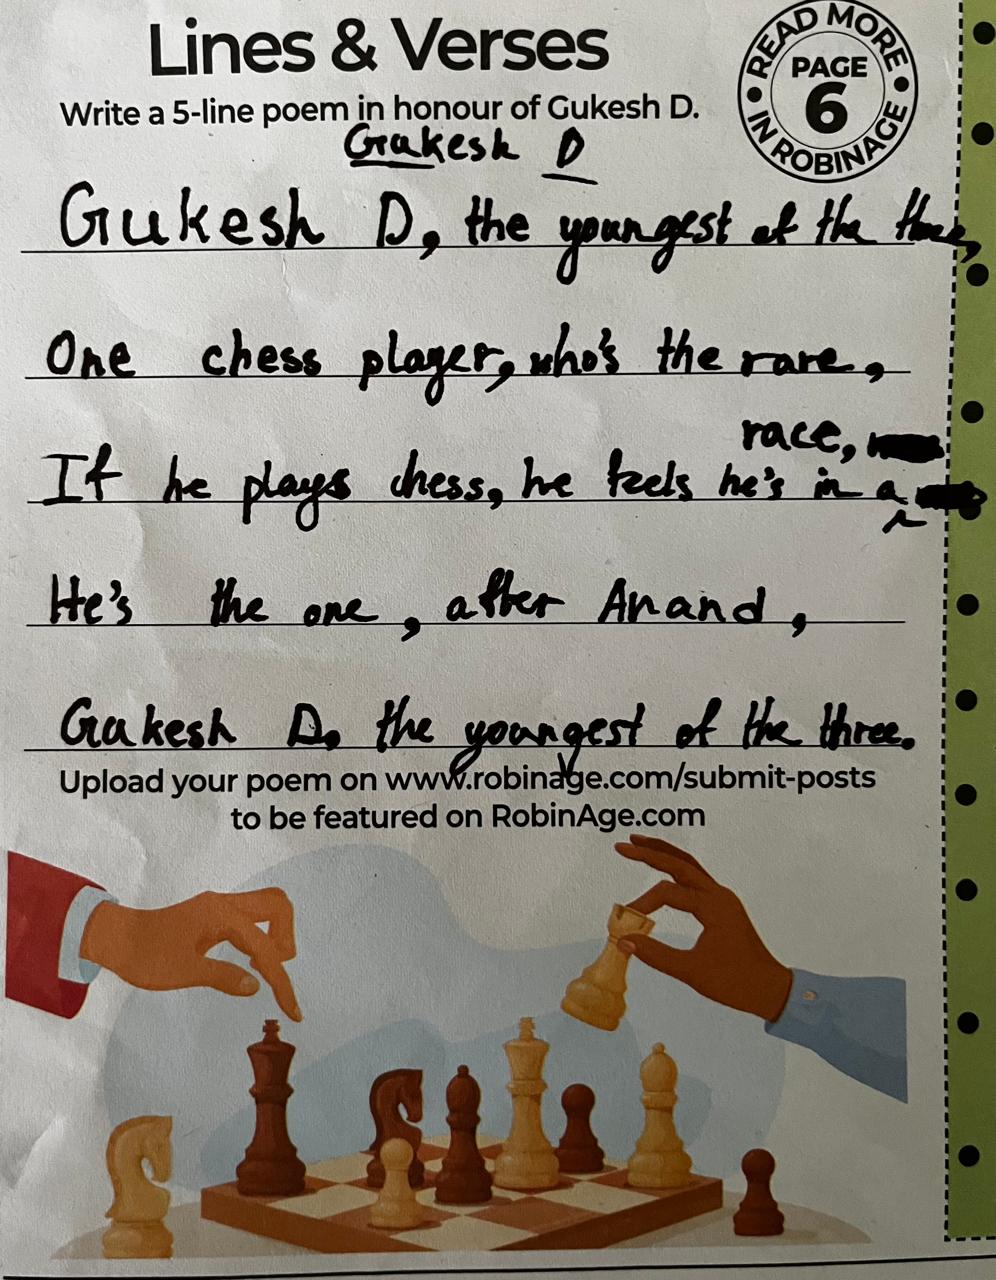 Lines & Verses
Write a 5-line poem in honour of Gukesh D.
READ MORE
PAGE
6
IN ROBINAGE
Gukesh D
Gukesh D, the youngest of the three,
One chess player, who's the rare,
If he plays chess, he feels he's in a race,
He's the one, after Anand,
Gukesh D, the youngest of the three.
Upload your poem on www.robinage.com/submit-posts
to be featured on RobinAge.com